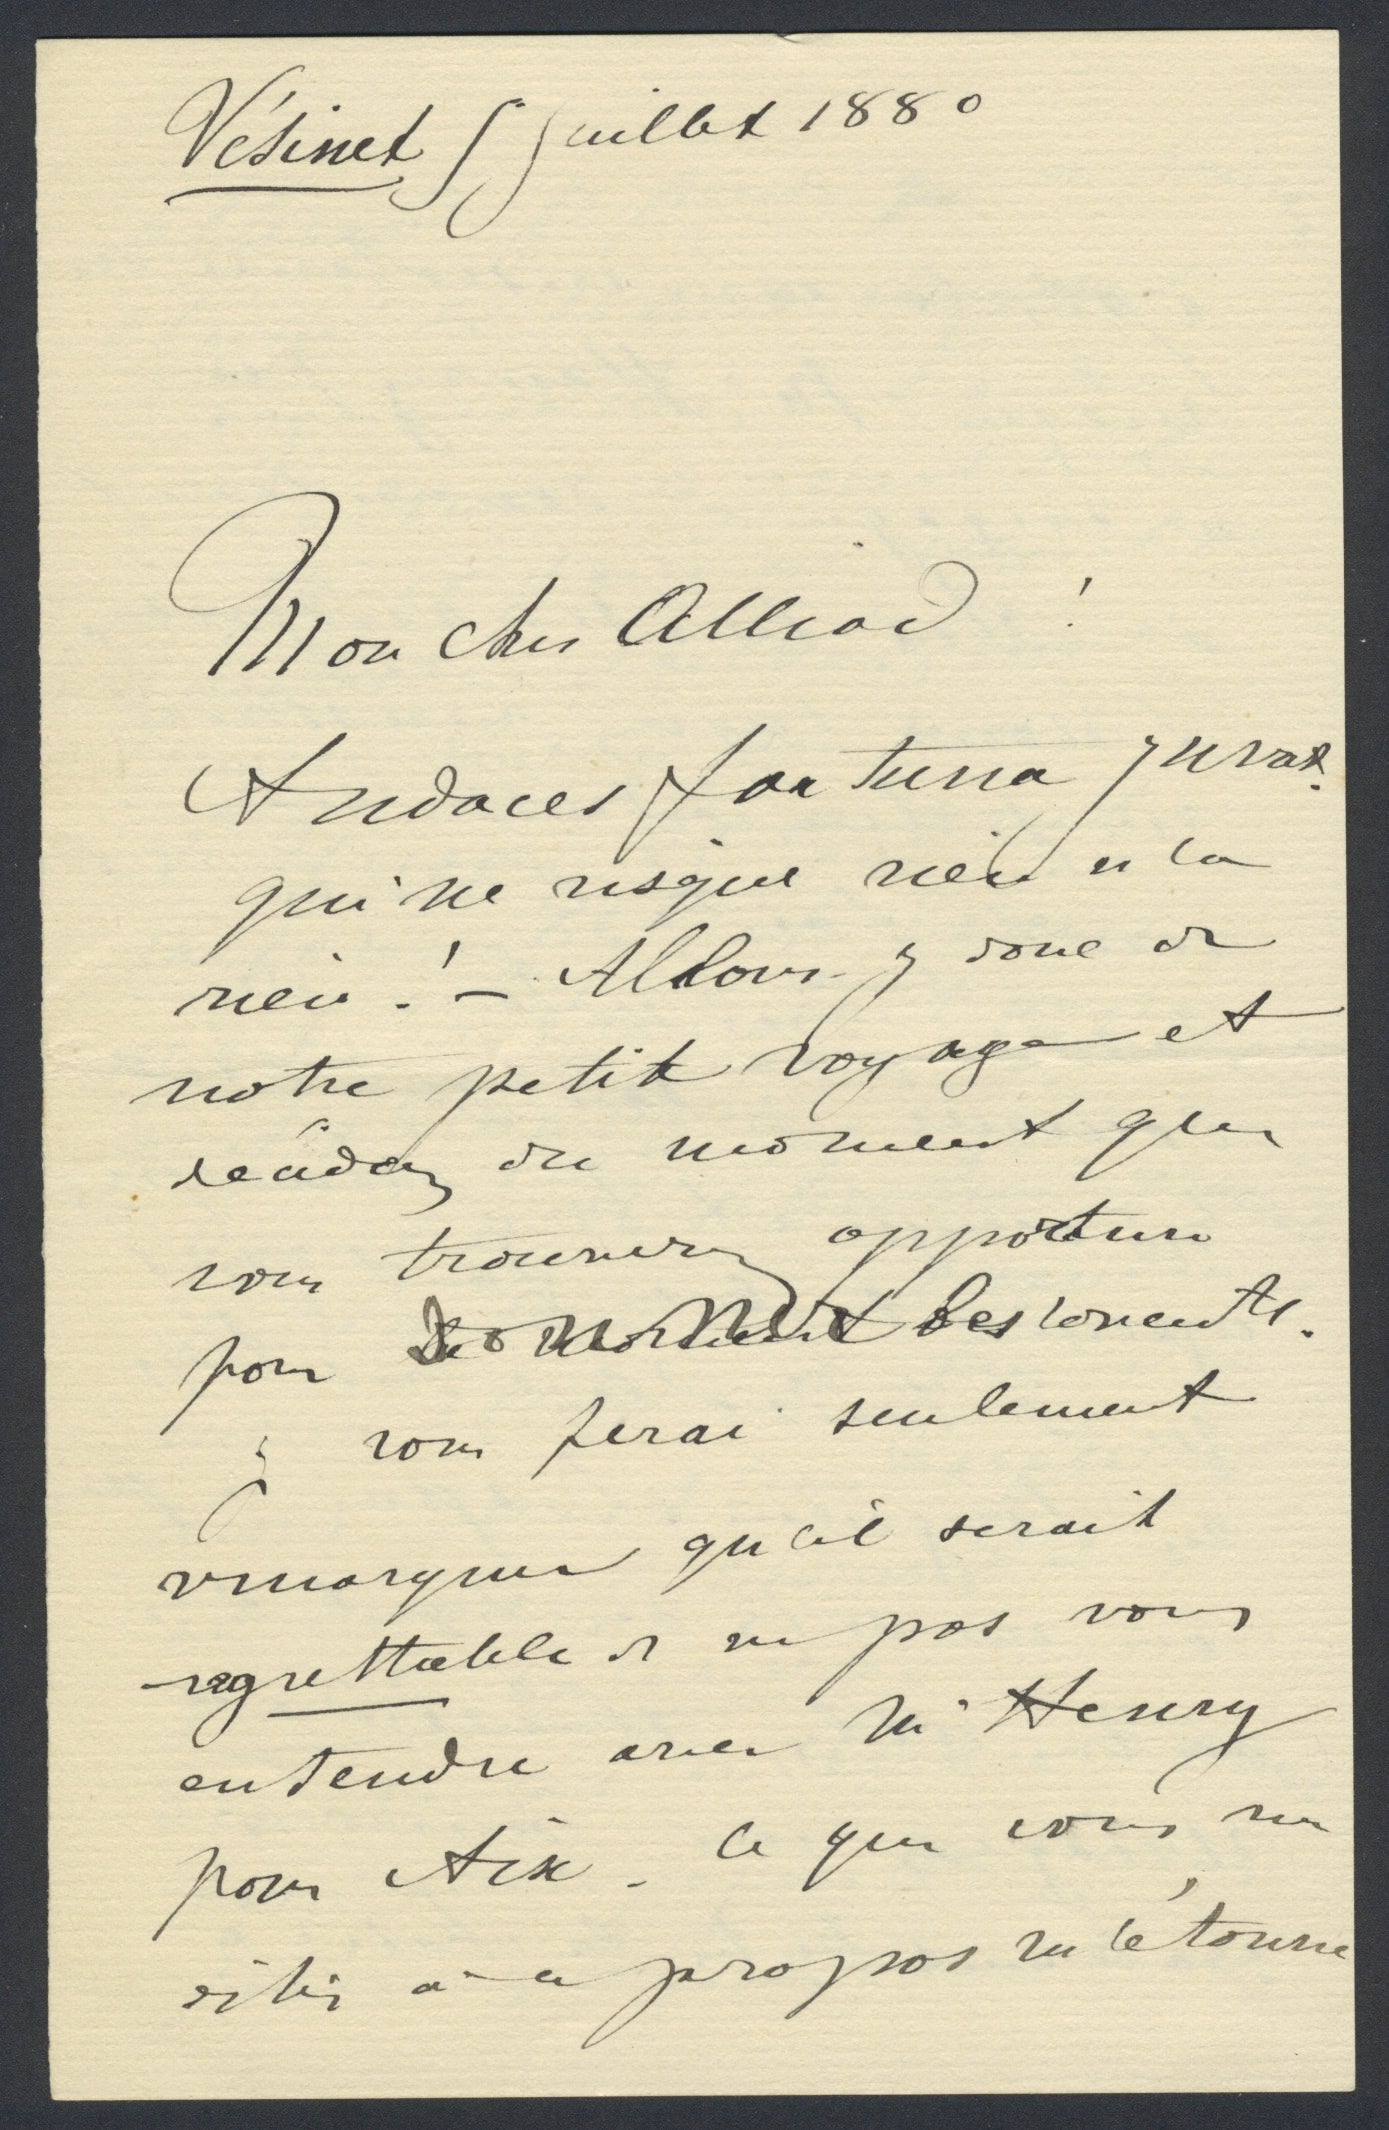 Vésinet 5 juillet 1880
Mon cher Alliod !
Audaces fortuna juvat.
qui ne risque rien n'a
rien ! — Allons-y donc de
notre petit voyage et
décidez du moment que
vous trouverez opportun
pour les concerts.
Je vous ferai seulement
remarquer qu'il serait
regrettable de ne pas vous
entendre avec Mr Henry
pour Aix. Ce que vous me
dites à ce propos m'étonne